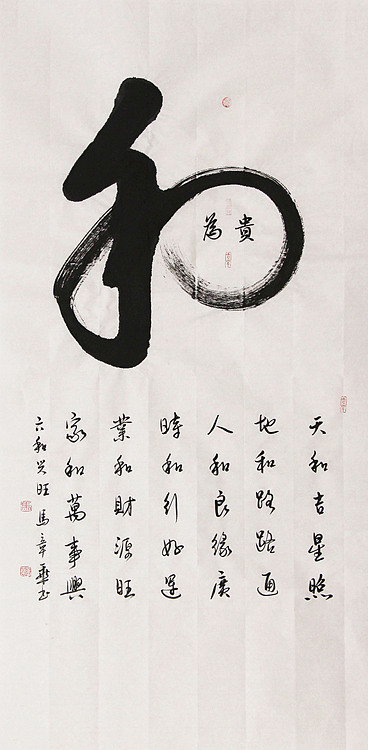 和
為貴
天和吉星照
地和路路通
人和良緣廣
時和引好運
業和財源旺
家和萬事興
六和兴旺 馬章 书